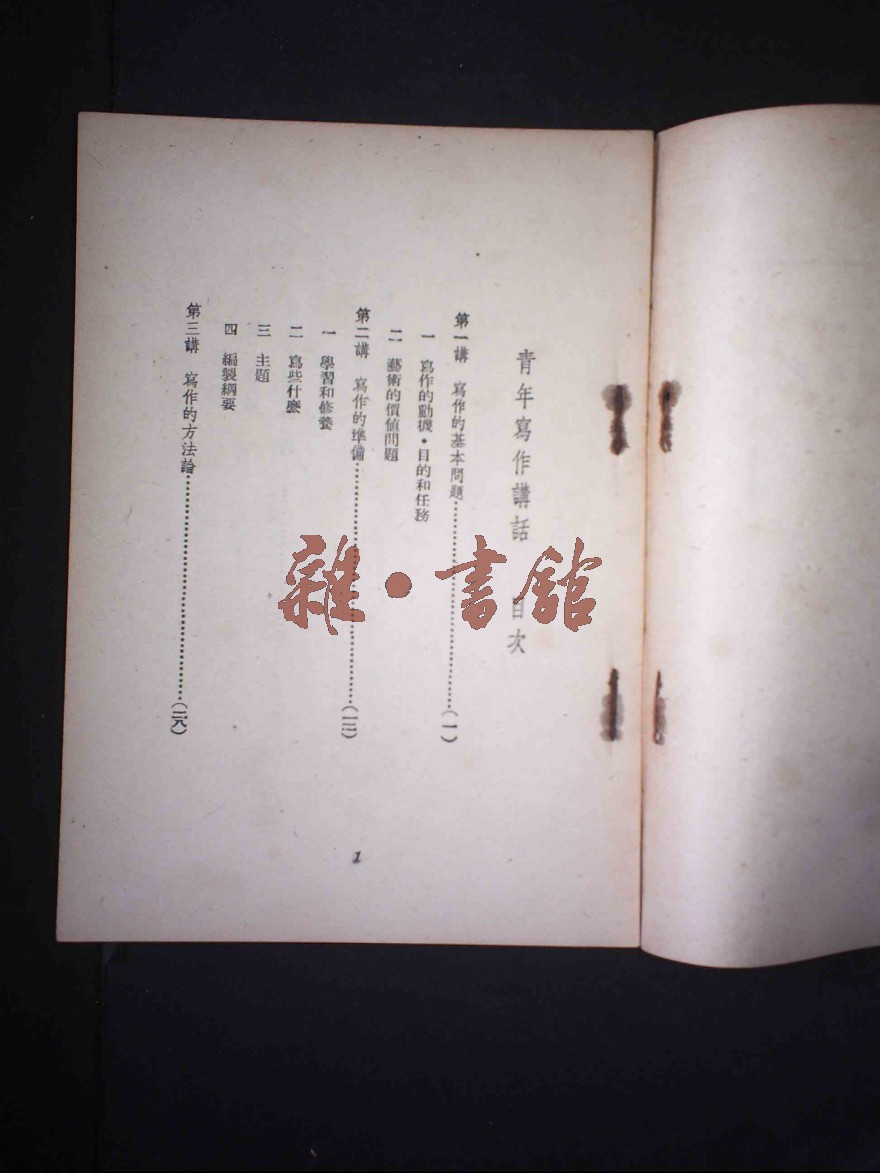 青年寫作講話 目次
第一講 寫作的基本問題…………(一)
一 寫作的動機·目的和任務
二 藝術的價值問題
第二講 寫作的準備…………(一三)
一 學習和修養
二 寫些什麽
三 主題
四 編製綱要
第三講 寫作的方法論…………(二八)
1
雜·書館